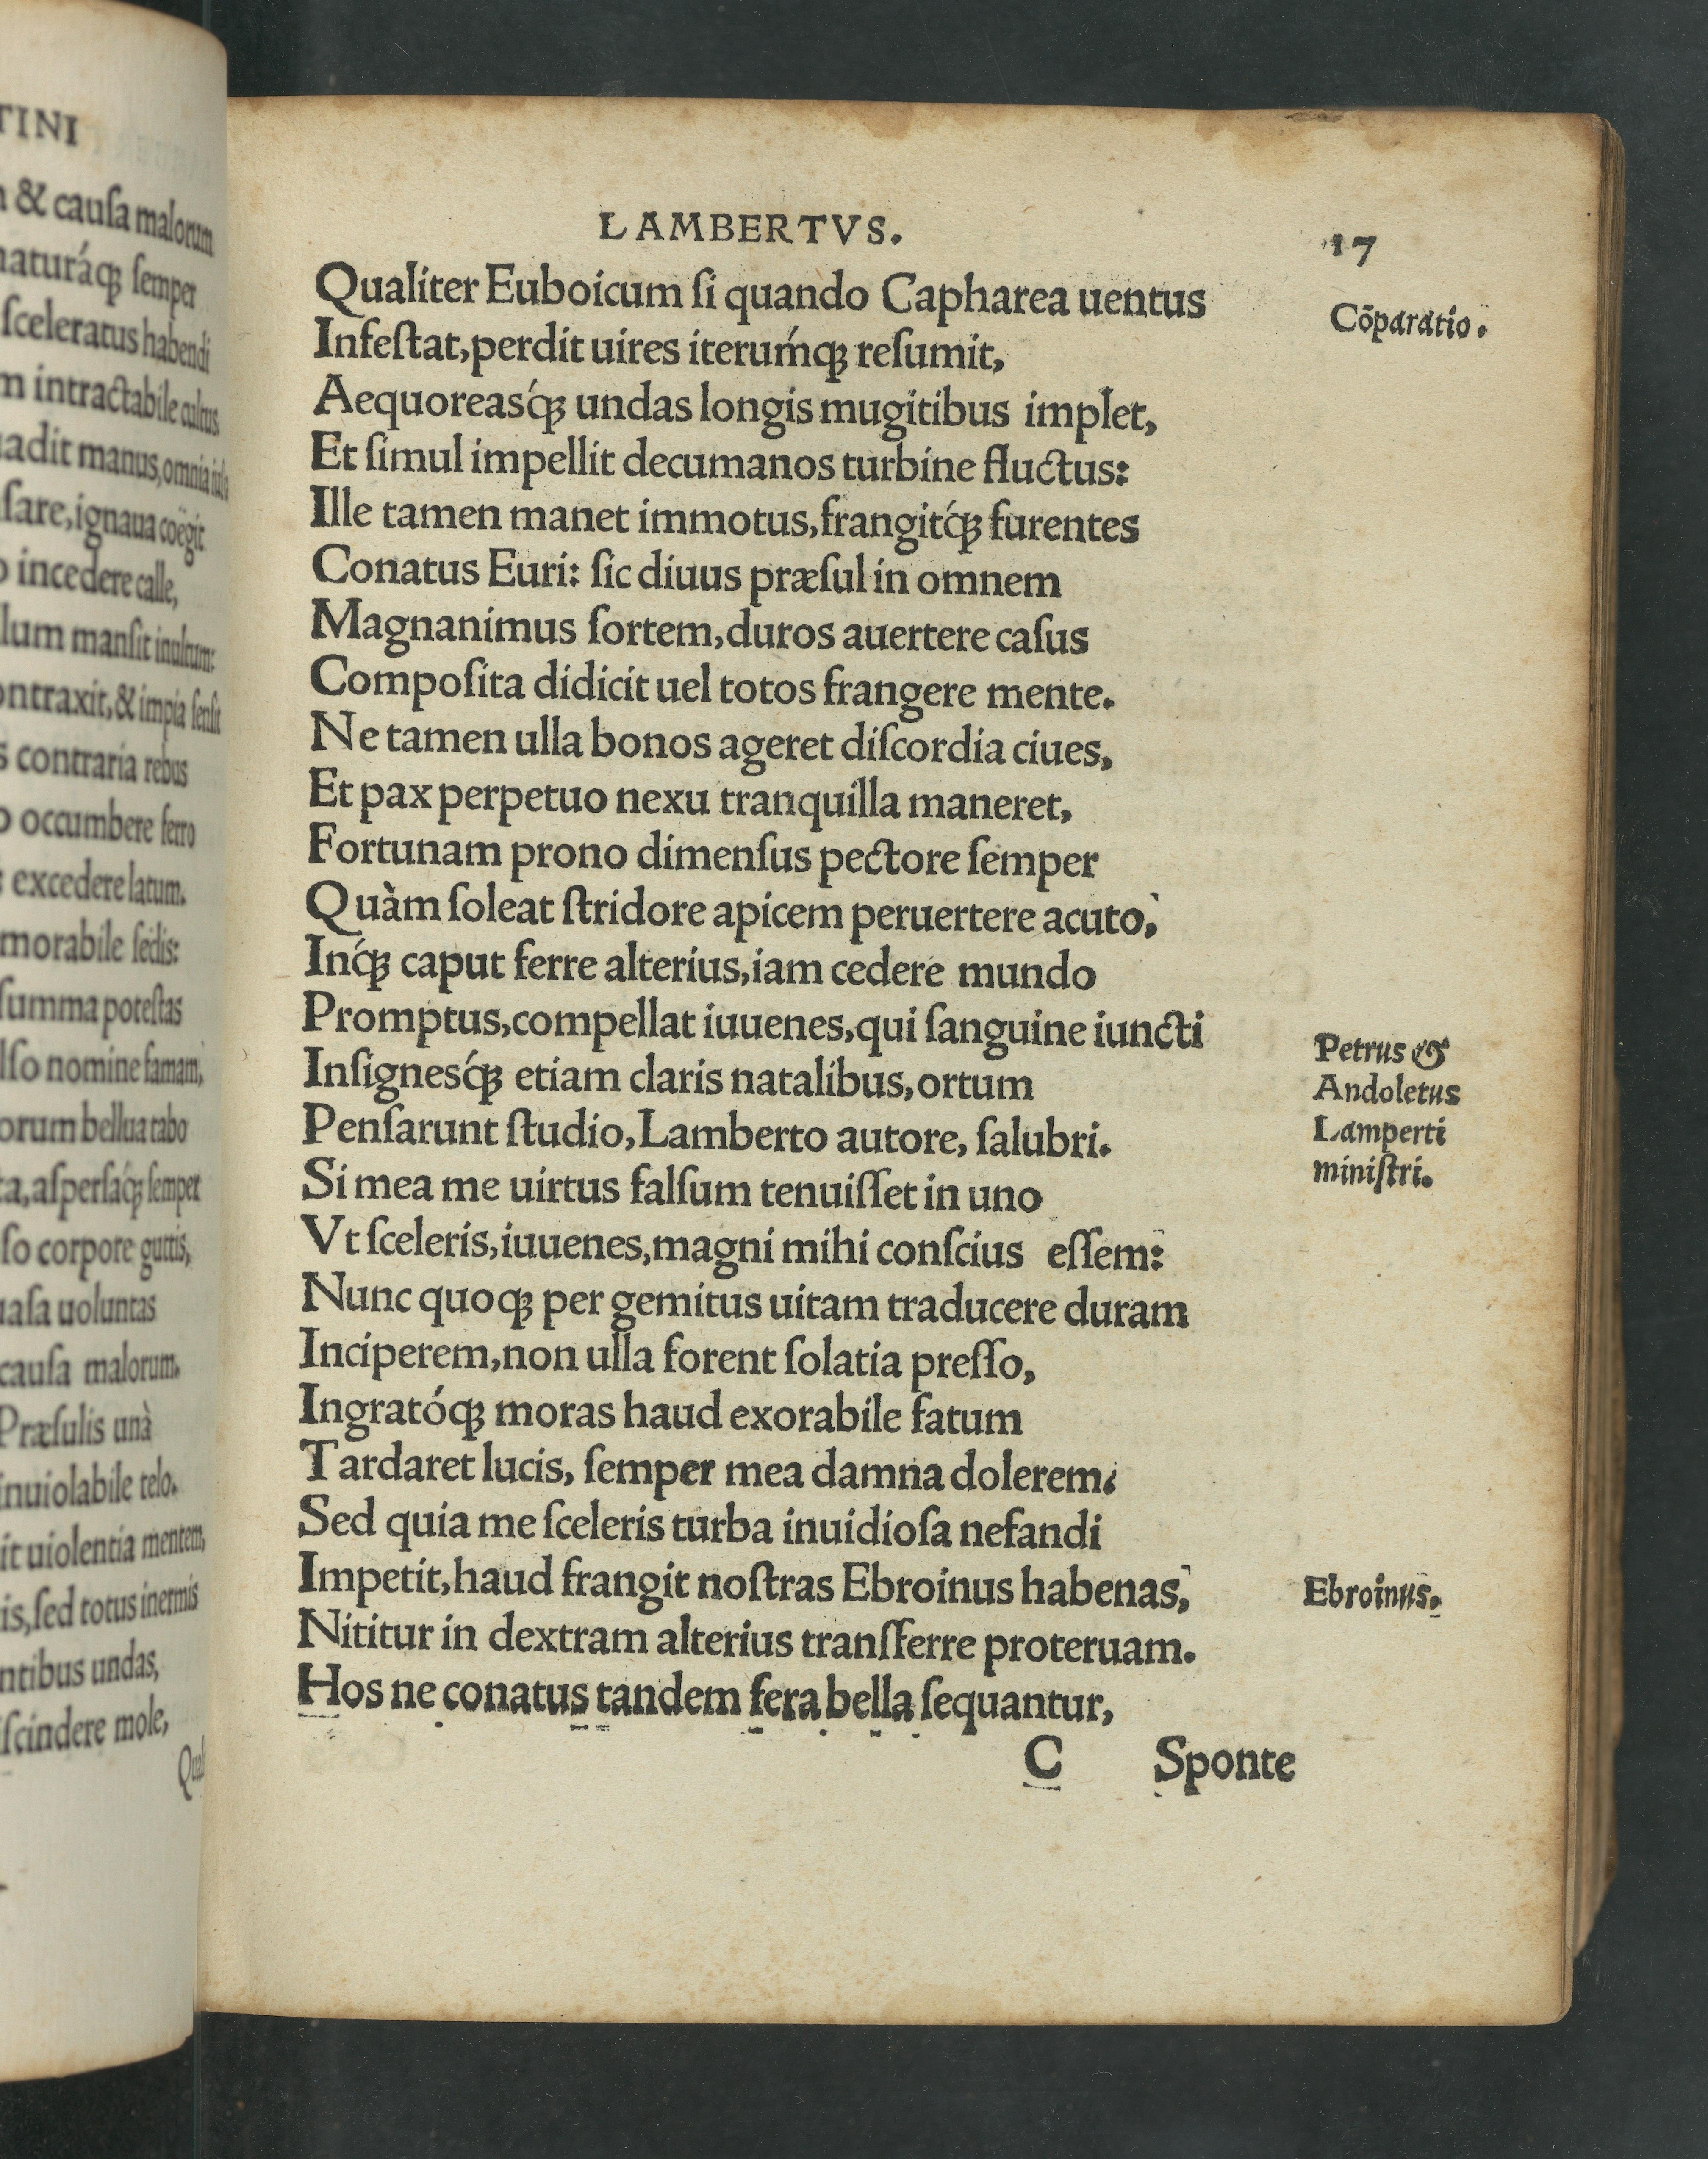 TINI
& cauſa malorum
naturáq́ꝫ ſemper
ſceleratus habendi
intractabile cultus
manus, omnia
ſare, ignaua coëgit
incedere calle,
manſit inultum:
contraxit, & impia ſenſit
contraria rebus
occumbere ferro
excedere latum.
morabile ſedis:
ſumma poteſtas
nomine famam,
bellua tabo
aſperſáq́ꝫ ſemper
corpore guttis,
uoluntas
cauſa malorum.
Præſulis unà
inuiolabile telo.
uiolentia mentem,
ſed totus inermis
undas,
mole,
LAMBERTVS.
17
Qualiter Euboicum ſi quando Capharea uentus
Cōparatio.
Infeſtat, perdit uires iteruḿqꝫ reſumit,
Aequoreasq́ꝫ undas longis mugitibus implet,
Et ſimul impellit decumanos turbine fluctus:
Ille tamen manet immotus, frangitq́ꝫ furentes
Conatus Euri: ſic diuus præſul in omnem
Magnanimus ſortem, duros auertere caſus
Compoſita didicit uel totos frangere mente.
Ne tamen ulla bonos ageret diſcordia ciues,
Et pax perpetuo nexu tranquilla maneret,
Fortunam prono dimenſus pectore ſemper
Quàm ſoleat ſtridore apicem peruertere acuto,
Inq́ꝫ caput ferre alterius, iam cedere mundo
Promptus, compellat iuuenes, qui ſanguine iuncti
Inſignesq́ꝫ etiam claris natalibus, ortum
Penſarunt ſtudio, Lamberto autore, ſalubri.
Petrus &
Andoletus
Lamperti
miniſtri.
Si mea me uirtus falſum tenuiſſet in uno
Vt ſceleris, iuuenes, magni mihi conſcius eſſem:
Nunc quoqꝫ per gemitus uitam traducere duram
Inciperem, non ulla forent ſolatia preſſo,
Ingratóqꝫ moras haud exorabile fatum
Tardaret lucis, ſemper mea damna dolerem:
Sed quia me ſceleris turba inuidioſa nefandi
Impetit, haud frangit noſtras Ebroinus habenas,
Ebroinus.
Nititur in dextram alterius tranſferre proteruam.
Hos ne conatus tandem fera bella ſequantur,
C Sponte